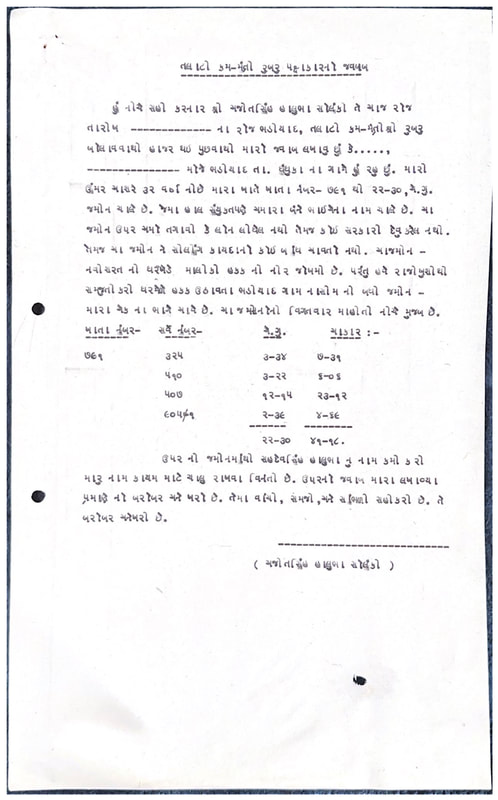 તલાટી કમ-મંત્રી રૂબરૂ પક્ષકારનો જવાબ
હું નીચે સહી કરનાર શ્રી અજીતસિંહ હાલુભા સોલંકી તે આજ રોજ
તારીખ -------------- ના રોજ ભડીયાદ, તલાટી કમ-મંત્રીશ્રી રૂબરૂ
બોલાવવાથી હાજર થઇ પુછવાથી મારો જવાબ લખાવુ છું કે.....,
---------------- મોજે ભડીયાદ તા. ધંધુકા ના ગામે હું રહુ છું. મારી
ઉંમર આશરે ૩૨ વર્ષ નીછે મારા ખાતે ખાતા નંબર- ૭૯૧ થી ૨૨-૩૦,એ.ગુ.
જમીન ચાલે છે. જેમા હાલ સંયુક્તપણે અમારા બંને ભાઇઓના નામ ચાલે છે. આ
જમીન ઉપર અમો તગાવી કે લોન લીધેલ નથી તેમજ કોઇ સરકારી દેવુ કરેલ નથી.
તેમજ આ જમીન ને સીલીંગ કાયદાનો કોઇ બાધ આવતો નથી. આજમીન -
નવીસરત ની ઘરખેડે માલીકી હકક ની નીર જોખમી છે. પરંતુ હવે રાજીખુશીથી
સમજુતી કરી ઘરમેળે હકક ઉઠાવતા ભડીયાદ ગામ ની સીમ ની બધી જમીન -
મારા એક ના ભાગે આવે છે. આ જમીનની વિગતવાર માહીતી નીચે મુજબ છે.
ખાતા નંબર- સર્વે નંબર- એ.ગુ. આકાર :-
૭૯૧ ૩૨૫ ૩-૩૪ ૭-૩૧
૫૧૦ ૩-૨૨ ૬-૦૬
૫૦૭ ૧૨-૧૫ ૨૩-૧૨
૯૦૫/૧ ૨-૩૯ ૪-૬૯
------- --------
૨૨-૩૦ ૪૧-૧૮.
ઉપર ની જમીનમાંથી સહદેવસિંહ હાલુભા નુ નામ કમી કરી
મારૂ નામ કાયમ માટે ચાલુ રાખવા વિનંતી છે. ઉપરનો જવાબ મારા લખાવ્યા
પ્રમાણે નો બરોબર અને ખરો છે. તેમા વાંચી, સમજી,અને સાંભળી સહીકરી છે. તે
બરોબર અનેખરી છે.
------------------------------
( અજીતસિંહ હાલુભા સોલંકી )